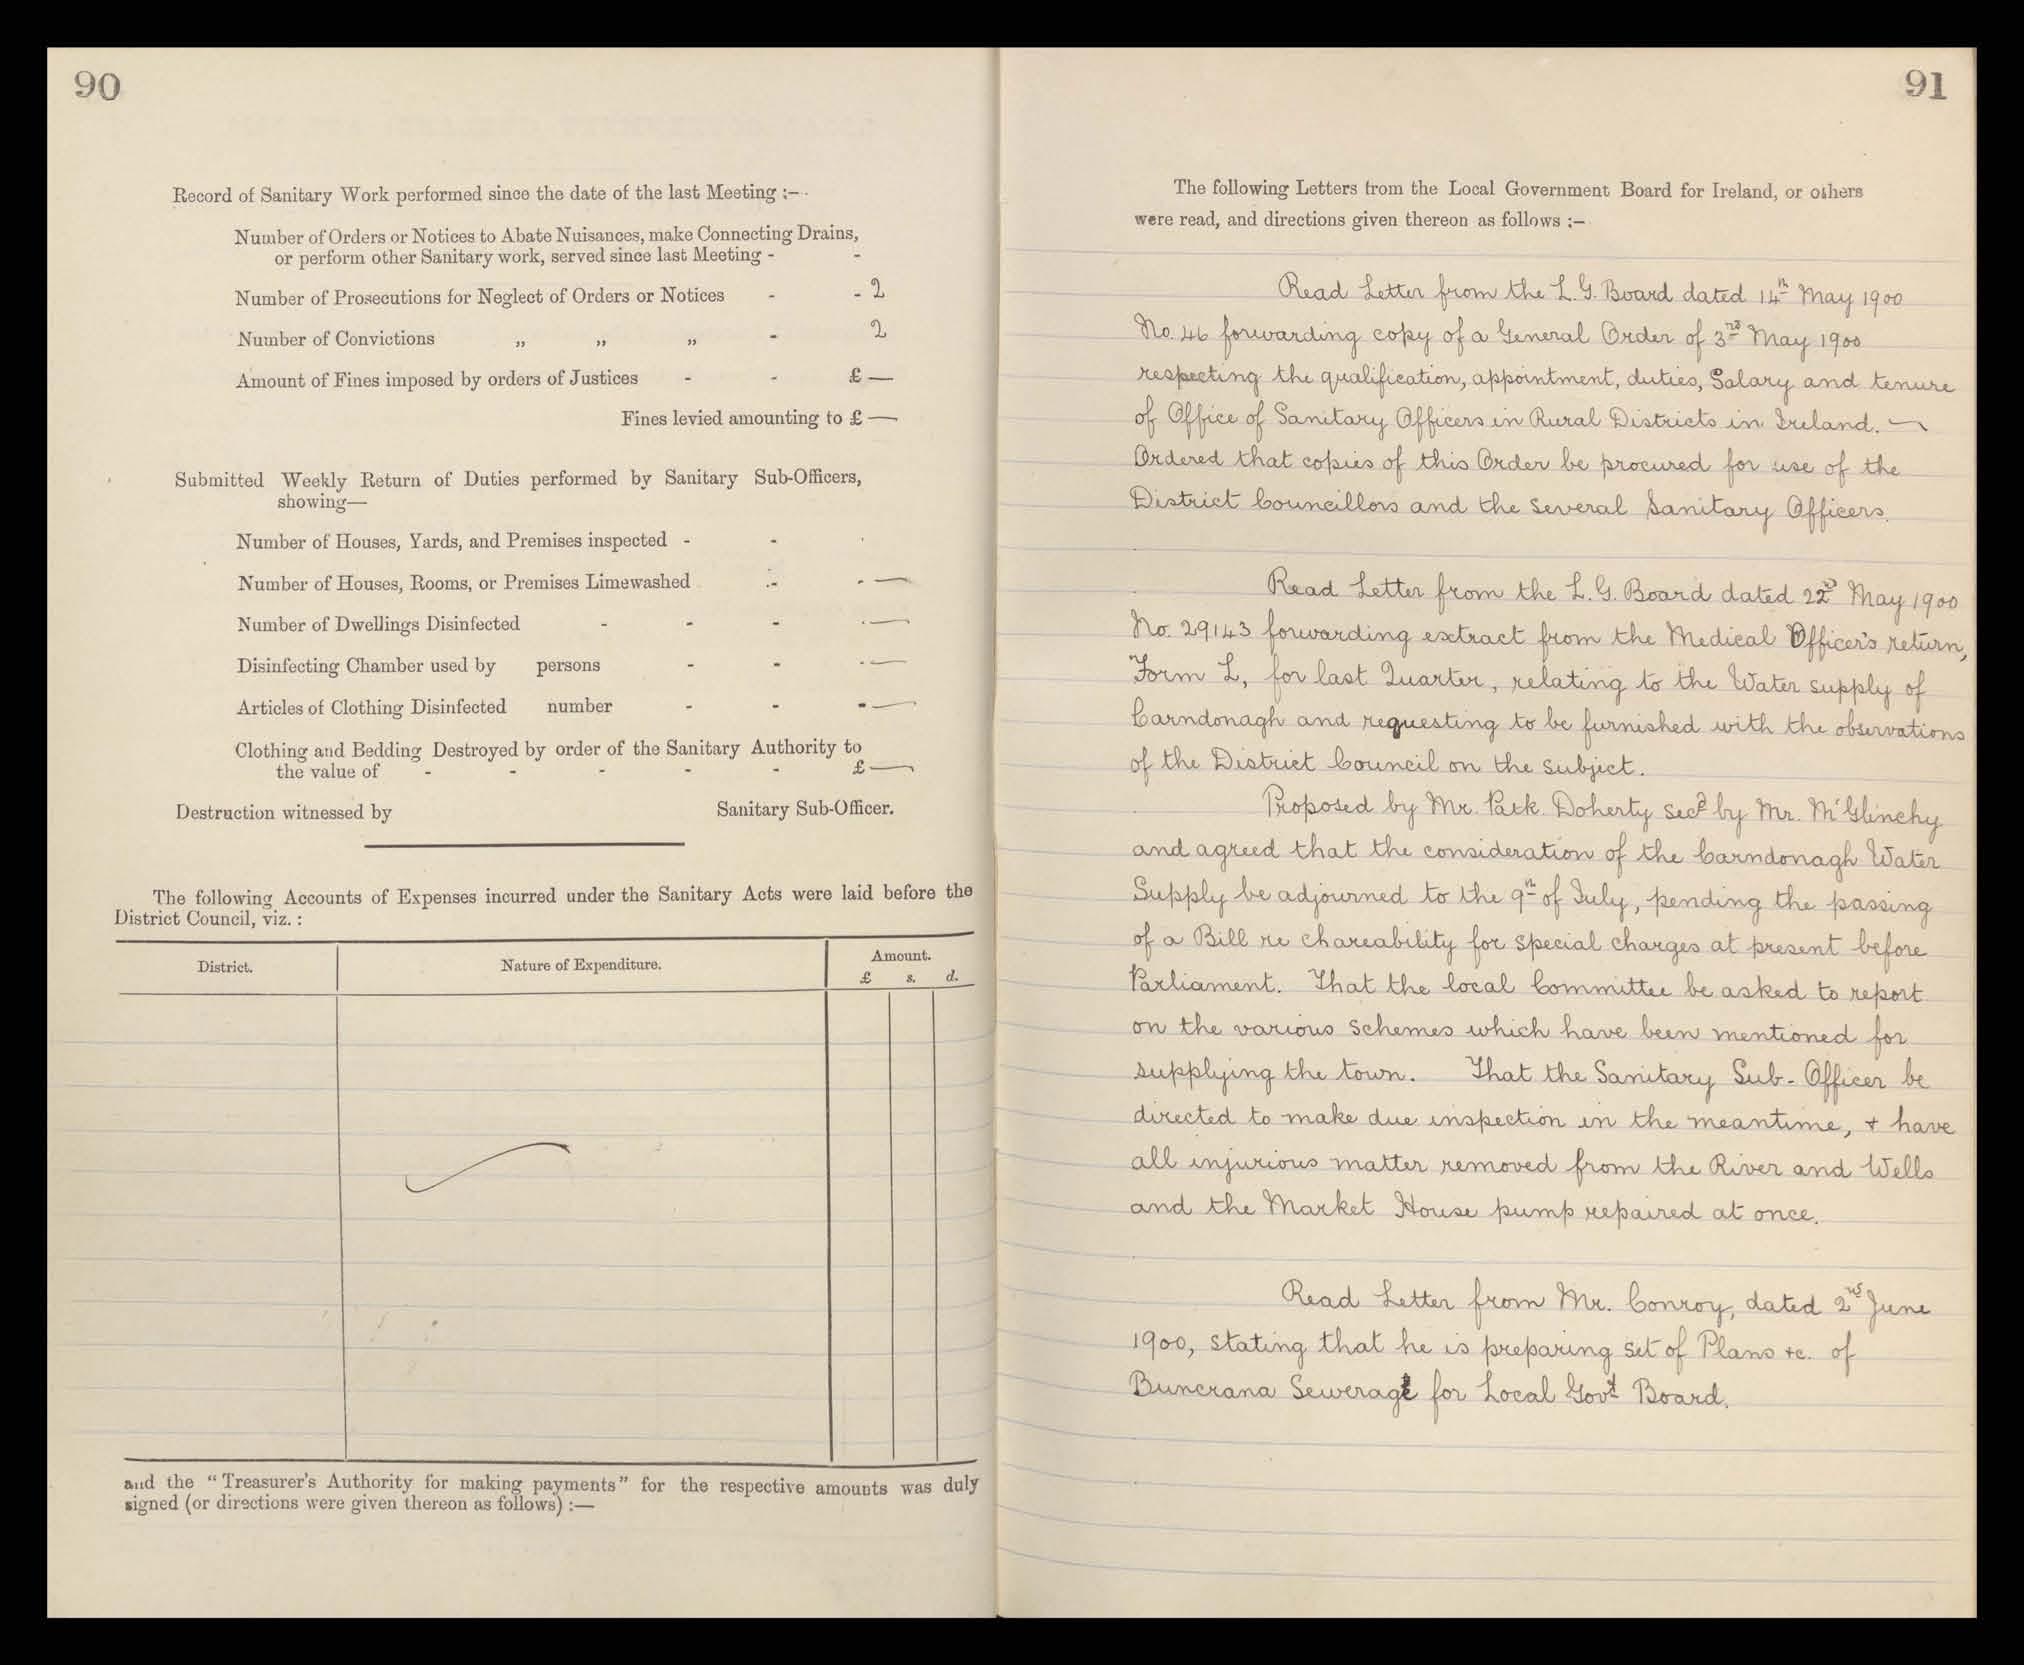 90
Record of Sanitary Work performed since the date of the last Meeting :—
Number of Orders or Notices to Abate Nuisances, make Connecting Drains,
or perform other Sanitary work, served since last Meeting - -
Number of Prosecutions for Neglect of Orders or Notices - - 2
Number of Convictions „ „ „ - 2
Amount of Fines imposed by orders of Justices - - £ —
Fines levied amounting to £ —
Submitted Weekly Return of Duties performed by Sanitary Sub-Officers,
showing—
Number of Houses, Yards, and Premises inspected - -
Number of Houses, Rooms, or Premises Limewashed - - —
Number of Dwellings Disinfected - - - - —
Disinfecting Chamber used by persons - - - —
Articles of Clothing Disinfected number - - - —
Clothing and Bedding Destroyed by order of the Sanitary Authority to
the value of - - - - - £ —
Destruction witnessed by Sanitary Sub-Officer.
The following Accounts of Expenses incurred under the Sanitary Acts were laid before the
District Council, viz. :
District. Nature of Expenditure. Amount.
£ s. d.
and the "Treasurer's Authority for making payments" for the respective amounts was duly
signed (or directions were given thereon as follows) :—
91
The following Letters from the Local Government Board for Ireland, or others
were read, and directions given thereon as follows :—
Read Letter from the L. G. Board dated 14th May 1900
No. 46 forwarding copy of a General Order of 3rd May 1900
respecting the qualification, appointment, duties, Salary and tenure
of Office of Sanitary Officers in Rural Districts in Ireland. —
Ordered that copies of this Order be procured for use of the
District Councillors and the several Sanitary Officers.
Read Letter from the L. G. Board dated 22nd May 1900
No. 29143 forwarding extract from the Medical Officer's return,
Form L, for last Quarter, relating to the Water supply of
Carndonagh and requesting to be furnished with the observations
of the District Council on the subject.
Proposed by Mr. Patk. Doherty secd by Mr. McGlinchy
and agreed that the consideration of the Carndonagh Water
Supply be adjourned to the 9th of July, pending the passing
of a Bill re chareability for special charges at present before
Parliament. That the local Committee be asked to report
on the various schemes which have been mentioned for
supplying the town. That the Sanitary Sub-Officer be
directed to make due inspection in the meantime, & have
all injurious matter removed from the River and Wells
and the Market House pump repaired at once.
Read Letter from Mr. Conroy, dated 2nd June
1900, stating that he is preparing set of Plans &c. of
Buncrana Sewerage for Local Govt Board.